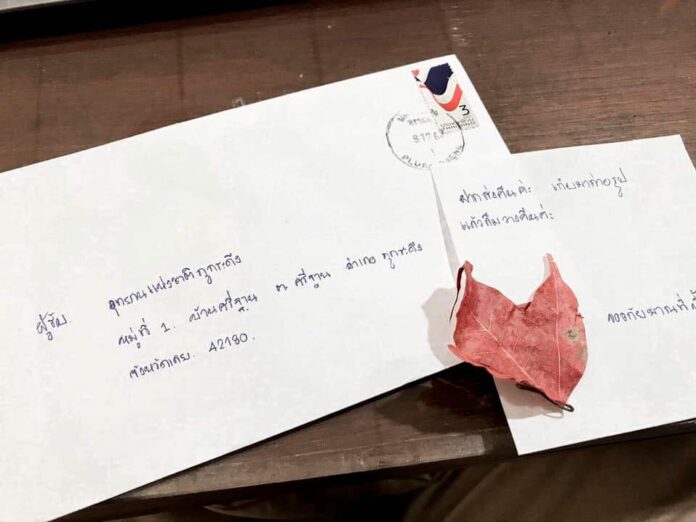 3
ผู้รับ
อุทยานแห่งชาติภูกระดึง
หมู่ที่ 1. บ้านศรีฐาน ต ศรีฐาน อำเภอ ภูกระดึง
จังหวัดเลย. 42180.
ฝากส่งคืนค่ะ เก็บมาถ่ายรูป
แล้วลืมวางคืนค่ะ
ขออภัยมาณที่นี้